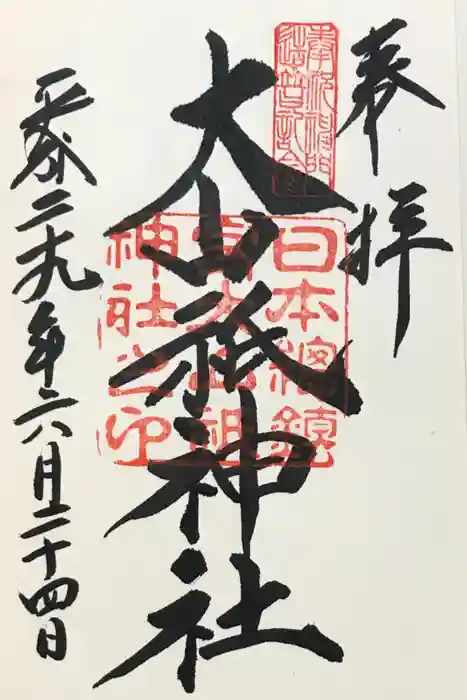 奉拝
日本総鎮
守大山祇
神社之印
大山祇神社
平成二十九年六月二十四日